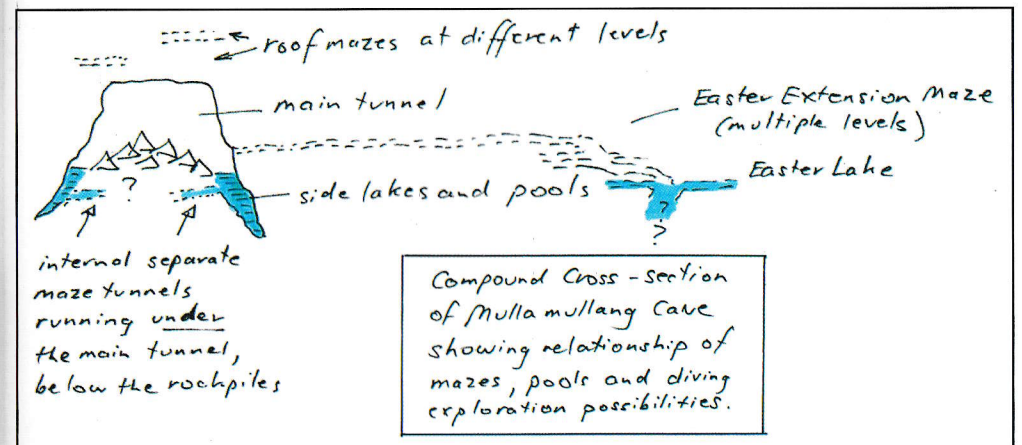 roof mazes at different levels
main tunnel
Easter Extension Maze
(multiple levels)
Easter Lake
side lakes and pools
?
?
?
internal separate
maze tunnels
running under
the main tunnel,
below the rockpiles
Compound Cross-section
of Mullamullang Cave
showing relationship of
mazes, pools and diving
exploration possibilities.